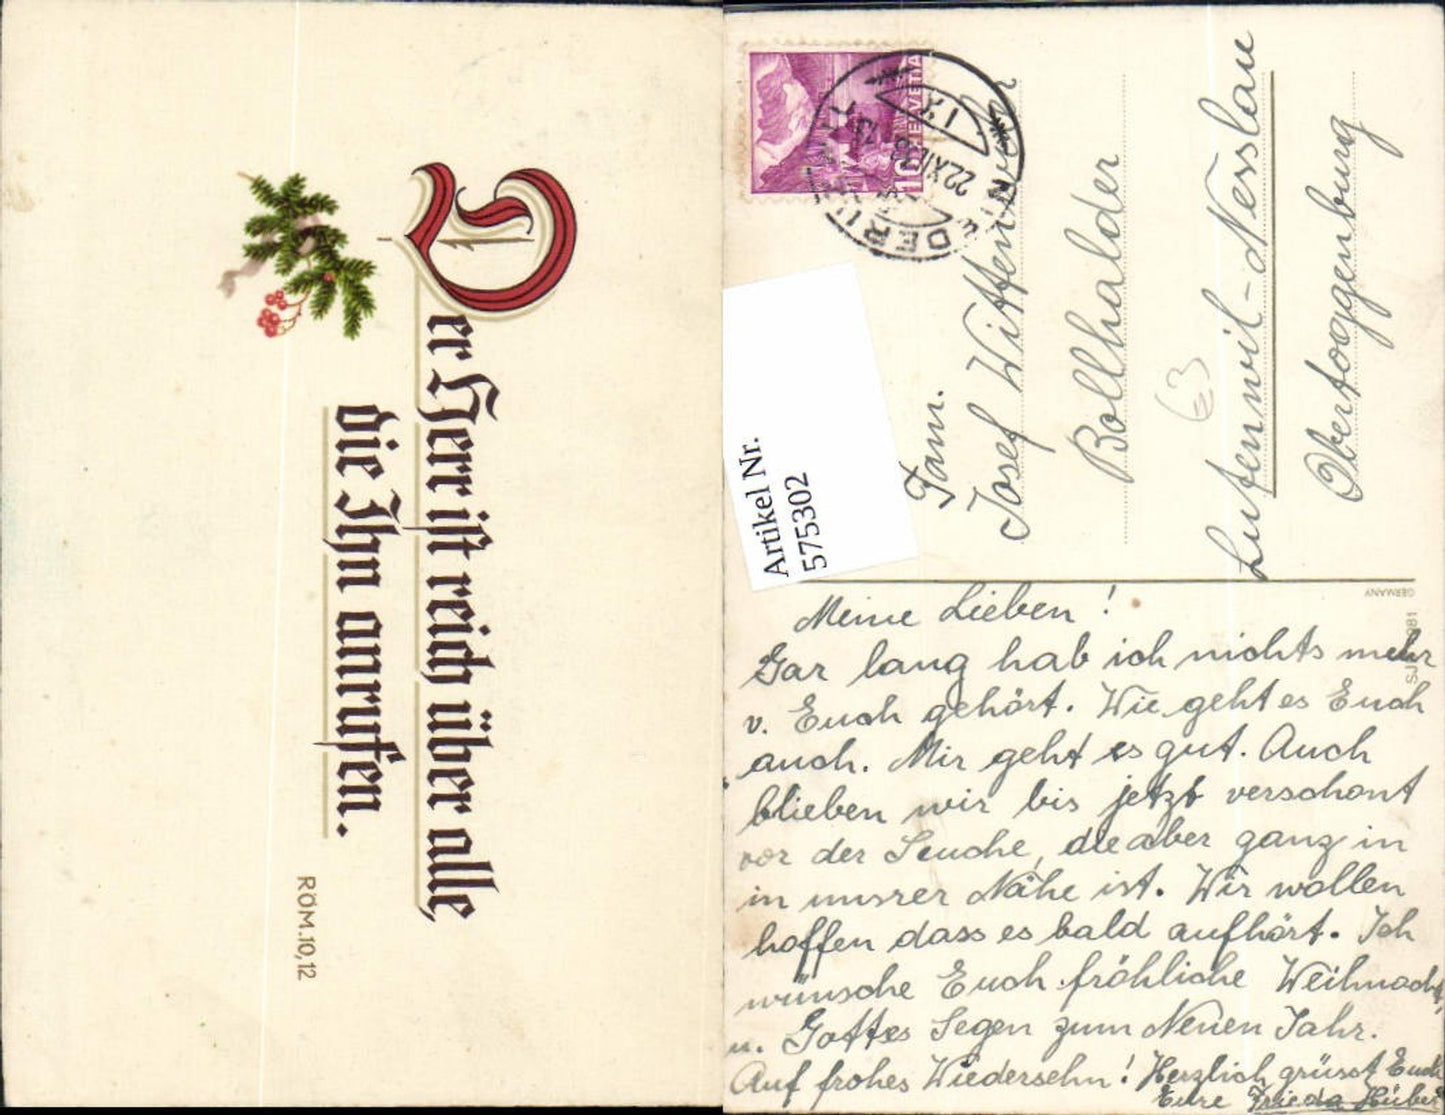 Der Herr ist reich über alle,
die Ihn anrufen.
RÖM.10,12
HELVETIA
10
22.XII.38
Artikel Nr.
575302
Fam.
Josef Wittenwiler
Bollhalder
Lutenwil-Nesslau
Obertoggenburg
63
GERMANY
Meine Lieben!
Gar lang hab ich nichts mehr
v. Euch gehört. Wie geht es Euch
auch. Mir geht es gut. Auch
blieben wir bis jetzt verschont
vor der Seuche, die aber ganz in
in unsrer Nähe ist. Wir wollen
hoffen dass es bald aufhört. Ich
wünsche Euch fröhliche Weihnacht,
u. Gottes Segen zum Neuen Jahr.
Auf frohes Wiedersehn! Herzlich grüsst Euch
Eure Frieda Huber